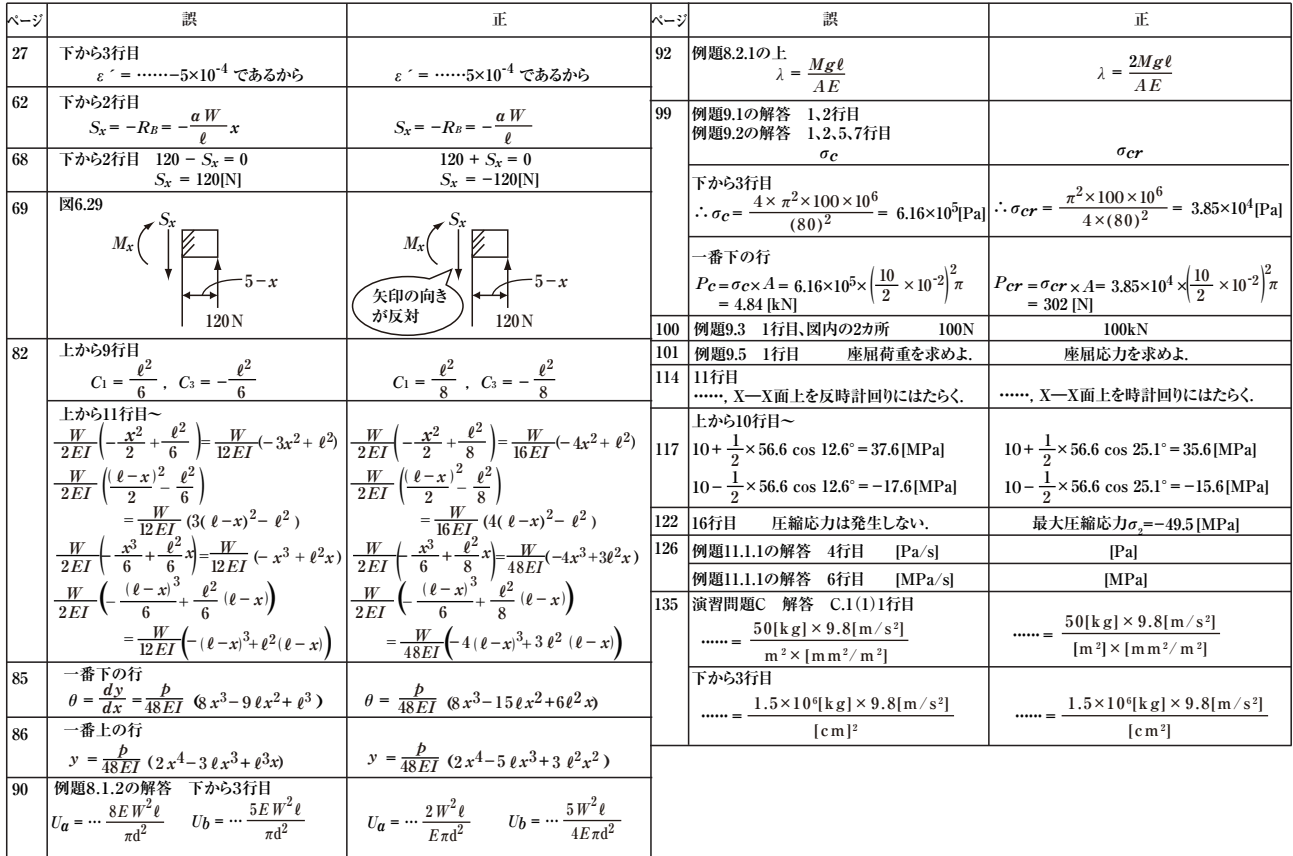 ページ 誤 正
27 下から3行目
ε´= ……−5×10⁻⁴ であるから ε´= ……5×10⁻⁴ であるから
62 下から2行目
Sx = −RB = −(aW/ℓ)x Sx = −RB = −aW/ℓ
68 下から2行目 120 − Sx = 0 120 + Sx = 0
Sx = 120[N] Sx = −120[N]
69 図6.29
Sx Sx
Mx Mx
5−x 5−x
矢印の向き
が反対
120N 120N
82 上から9行目
C1 = ℓ²/6 , C3 = −ℓ²/6 C1 = ℓ²/8 , C3 = −ℓ²/8
上から11行目〜
W/2EI(−x²/2 + ℓ²/6) = W/12EI(−3x² + ℓ²) W/2EI(−x²/2 + ℓ²/8) = W/16EI(−4x² + ℓ²)
W/2EI((ℓ−x)²/2 − ℓ²/6) W/2EI((ℓ−x)²/2 − ℓ²/8)
= W/12EI (3(ℓ−x)² − ℓ²) = W/16EI (4(ℓ−x)² − ℓ²)
W/2EI(−x³/6 + ℓ²/6 x) = W/12EI (−x³ + ℓ²x) W/2EI(−x³/6 + ℓ²/8 x) = W/48EI(−4x³+3ℓ²x)
W/2EI(−(ℓ−x)³/6 + ℓ²/6 (ℓ−x)) W/2EI(−(ℓ−x)³/6 + ℓ²/8 (ℓ−x))
= W/12EI(−(ℓ−x)³+ℓ²(ℓ−x)) = W/48EI(−4(ℓ−x)³+3ℓ²(ℓ−x))
85 一番下の行
θ = dy/dx = p/48EI (8x³−9ℓx²+ℓ³) θ = p/48EI (8x³−15ℓx²+6ℓ²x)
86 一番上の行
y = p/48EI (2x⁴−3ℓx³+ℓ³x) y = p/48EI (2x⁴−5ℓx³+3ℓ²x²)
90 例題8.1.2の解答 下から3行目
Ua = … 8EW²ℓ/πd² Ub = … 5EW²ℓ/πd² Ua = … 2W²ℓ/Eπd² Ub = … 5W²ℓ/4Eπd²
ページ 誤 正
92 例題8.2.1の上
λ = Mgℓ/AE λ = 2Mgℓ/AE
99 例題9.1の解答 1、2行目
例題9.2の解答 1、2、5、7行目
σc σcr
下から3行目
∴σc = 4×π²×100×10⁶/(80)² = 6.16×10⁵[Pa] ∴σcr = π²×100×10⁶/4×(80)² = 3.85×10⁴[Pa]
一番下の行
Pc = σc×A = 6.16×10⁵×(10/2 ×10⁻²)²π Pcr = σcr×A = 3.85×10⁴×(10/2 ×10⁻²)²π
= 4.84 [kN] = 302 [N]
100 例題9.3 1行目、図内の2カ所 100N 100kN
101 例題9.5 1行目 座屈荷重を求めよ. 座屈応力を求めよ.
114 11行目
……, X—X面上を反時計回りにはたらく. ……, X—X面上を時計回りにはたらく.
上から10行目〜
117 10+1/2×56.6 cos 12.6°=37.6[MPa] 10+1/2×56.6 cos 25.1°=35.6[MPa]
10−1/2×56.6 cos 12.6°=−17.6[MPa] 10−1/2×56.6 cos 25.1°=−15.6[MPa]
122 16行目 圧縮応力は発生しない. 最大圧縮応力σ₂=−49.5[MPa]
126 例題11.1.1の解答 4行目 [Pa/s] [Pa]
例題11.1.1の解答 6行目 [MPa/s] [MPa]
135 演習問題C 解答 C.1(1)1行目
…… = 50[kg]×9.8[m/s²]/m²×[mm²/m²] …… = 50[kg]×9.8[m/s²]/[m²]×[mm²/m²]
下から3行目
…… = 1.5×10⁶[kg]×9.8[m/s²]/[cm]² …… = 1.5×10⁶[kg]×9.8[m/s²]/[cm²]